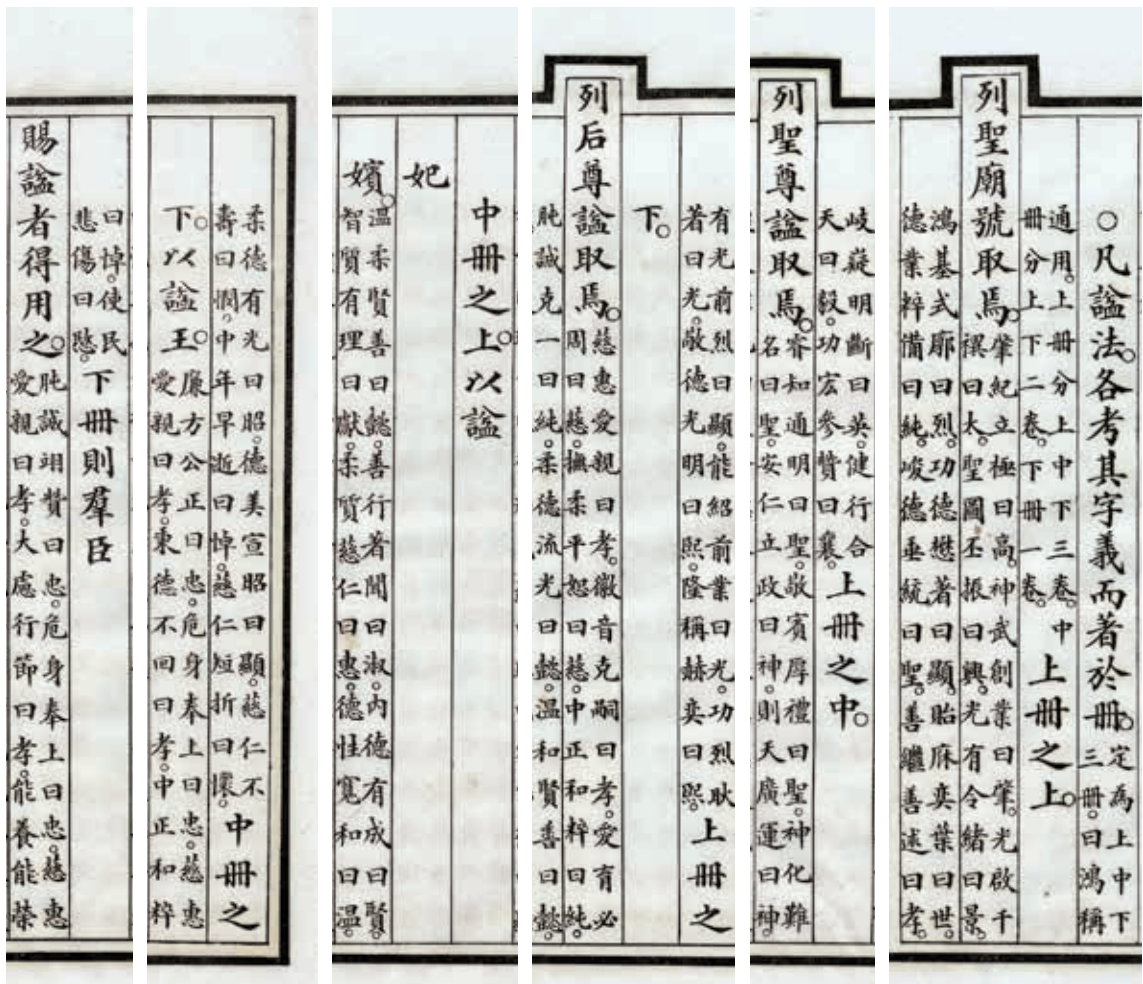 ○凡諡法。各考其字義而著於冊。定為上中下三冊。曰鴻稱
通用。上冊分上中下三卷。中冊分上下二卷。下冊一卷。上冊之上。
列聖廟號取焉。肇紀立極曰高。神武創業曰肇。光啟千禩曰太。聖圖丕振曰興。光有令緒曰景。
鴻基式廓曰烈。功德懋著曰顯。貽庥奕葉曰世。德業粹備曰純。峻德垂統曰聖。善繼善述曰孝。
岐嶷明斷曰英。健行合天曰毅。功宏參贊曰襄。上冊之中。
列聖尊諡取焉。睿知通明曰聖。敬賓厚禮曰聖。神化難名曰聖。安仁立政曰神。則天廣運曰神。
有光前烈曰顯。能紹前業曰光。功烈耿著曰光。敬德光明曰熙。隆稱赫奕曰熙。上冊之
下。
列后尊諡取焉。慈惠愛親曰孝。徽音克嗣曰孝。愛育必周曰慈。撫柔平恕曰慈。中正和粹曰純。
肫誠克一曰純。柔德流光曰懿。溫和賢善曰懿。
中冊之上。以諡
妃
嬪。溫柔賢善曰懿。善行著聞曰淑。內德有成曰賢。智質有理曰獻。柔質慈仁曰惠。德性寬和曰溫。
柔德有光曰昭。德美宣昭曰顯。慈仁不壽曰憫。中年早逝曰悼。慈仁短折曰懷。中冊之
下。以諡王。廉方公正曰忠。危身奉上曰忠。慈惠愛親曰孝。秉德不回曰孝。中正和粹
曰悼。使民悲傷曰愍。下冊則羣臣
賜諡者得用之。肫誠翊贊曰忠。危身奉上曰忠。慈惠愛親曰孝。大慮行節曰孝。能養能榮